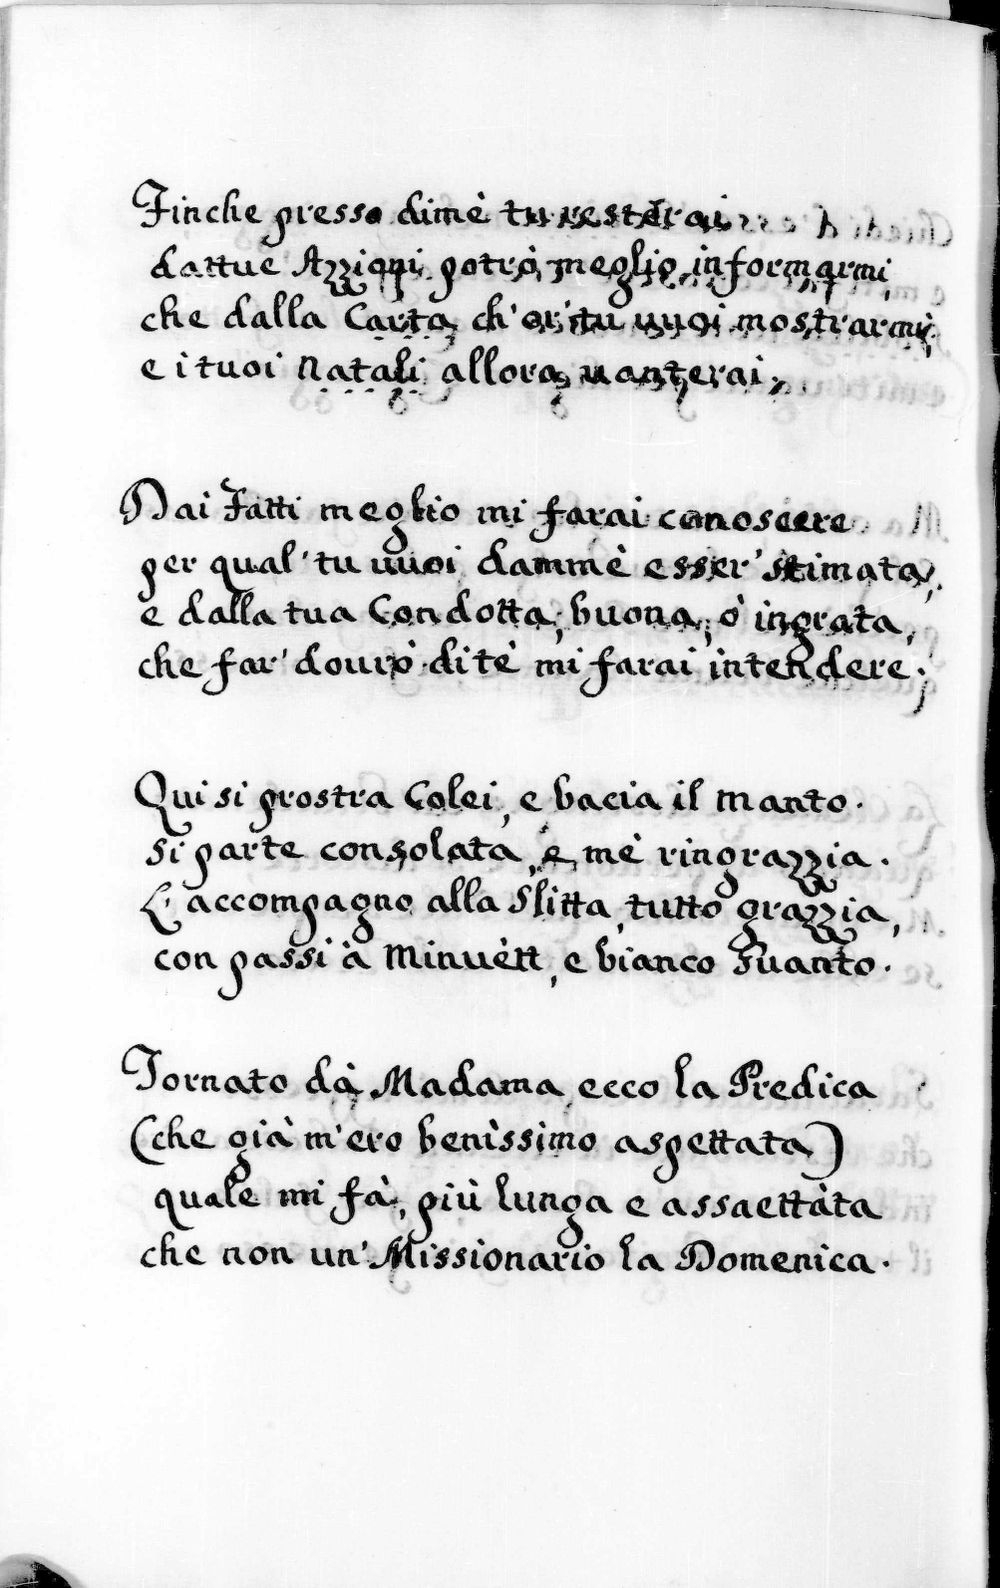 Finche presso dimè tu resterai
dattue Azzioni potrò meglio informarmi,
che dalla Carta, ch'or' tu vuoi mostrarmi;
e i tuoi Natali allora vanterai;
Dai Fatti meglio mi farai conoscere
per qual' tu vuoi dammè esser' stimata,
e dalla tua Condotta, buona, o' ingrata,
che far' dourò di tè mi farai intendere;
Qui si prostra Colei, e bacia il manto.
Si parte consolata, è mè ringrazzia.
L' accompagno alla Slitta, tutto grazzia,
con passi à Minuètt, e bianco Guanto.
Tornato dà Madama, ecco la Predica
(che già m'ero benìssimo aspettata)
quale mi fà, più lunga e assaettàta
che non un' Missionario la Domenica.